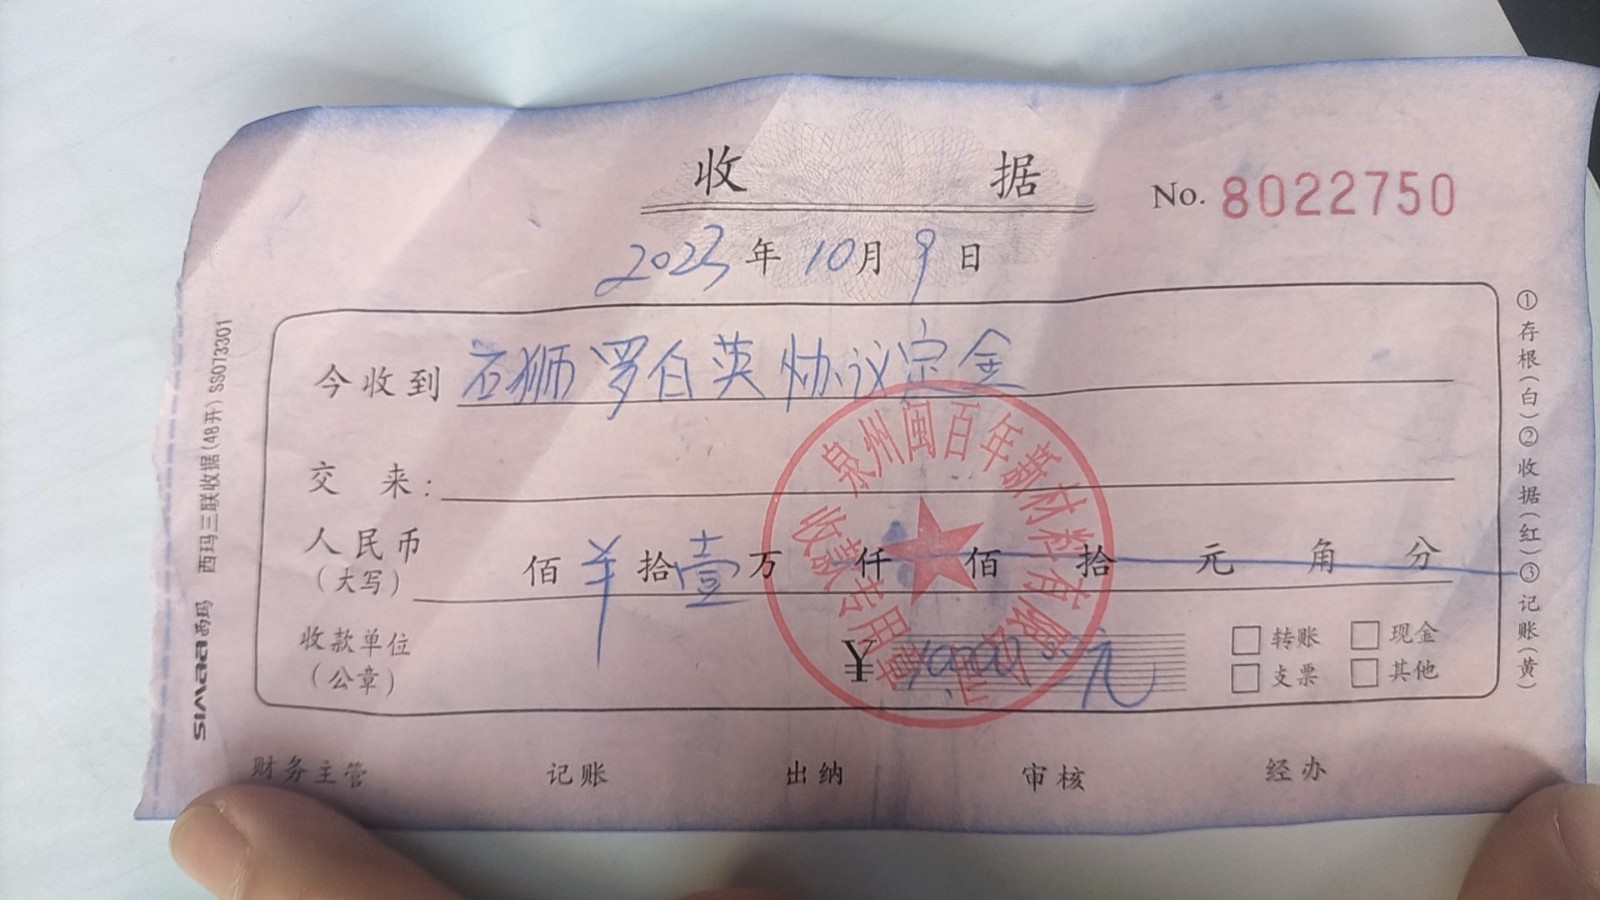 收 据
No. 8022750
2023年10月9日
今收到 石狮罗白英协议定金
交 来:
人民币
(大写)
佰¥拾壹万仟佰拾元角分
收款单位
(公章)
¥ 10000元
转账 现金
支票 其他
财务主管 记账 出纳 审核 经办
泉州闽百年新材料有限公司
收款专用章
①存根(白)②收据(红)③记账(黄)
SIMAA西玛 西玛三联收据(48开) SS073301